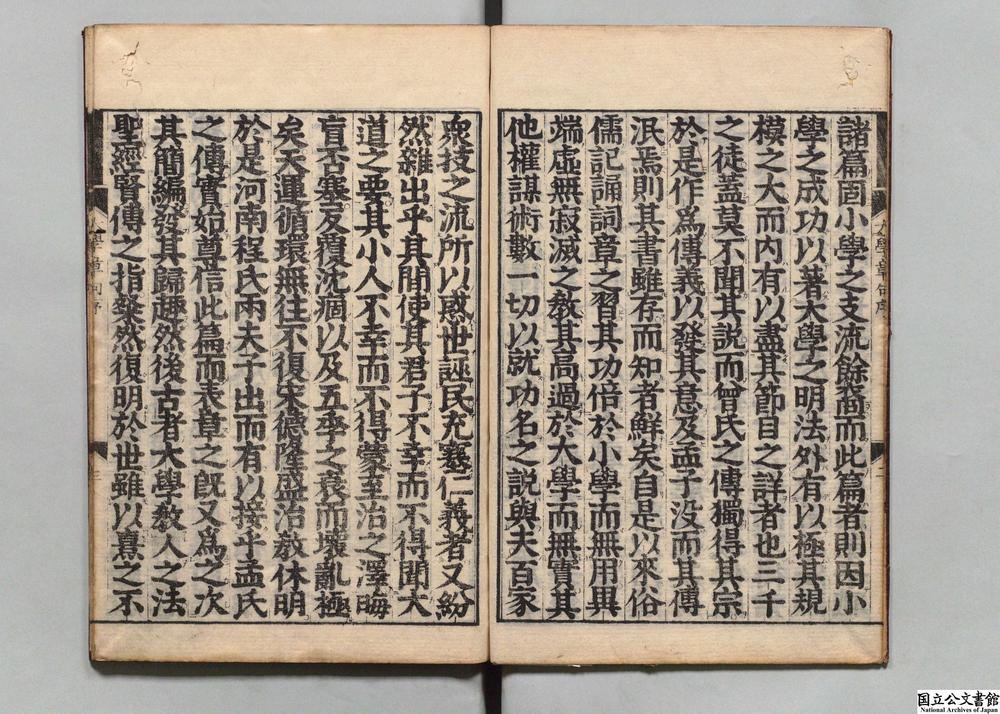 諸篇固小學之支流餘裔而此篇者則因小
學之成功以著大學之明法外有以極其規
模之大而内有以盡其節目之詳者也三千
之徒蓋莫不聞其說而曾氏之傳獨得其宗
於是作爲傳義以發其意及孟子没而其傳
泯焉則其書雖存而知者鮮矣自是以來俗
儒記誦詞章之習其功倍於小學而無用異
端虛無寂滅之敎其高過於大學而無實其
他權謀術數一切以就功名之說與夫百家
衆技之流所以惑世誣民充塞仁義者又紛
然雜出乎其閒使其君子不幸而不得聞大
道之要其小人不幸而不得蒙至治之澤晦
盲否塞反覆沈痼以及五季之衰而壞亂極
矣天運循環無往不復宋德隆盛治敎休明
於是河南程氏兩夫子出而有以接乎孟氏
之傳實始尊信此篇而表章之旣又爲之次
其簡編發其歸趣然後古者大學敎人之法
聖經賢傳之指粲然復明於世雖以熹之不
大學章句序
國立公文書館
National Archives of Japan